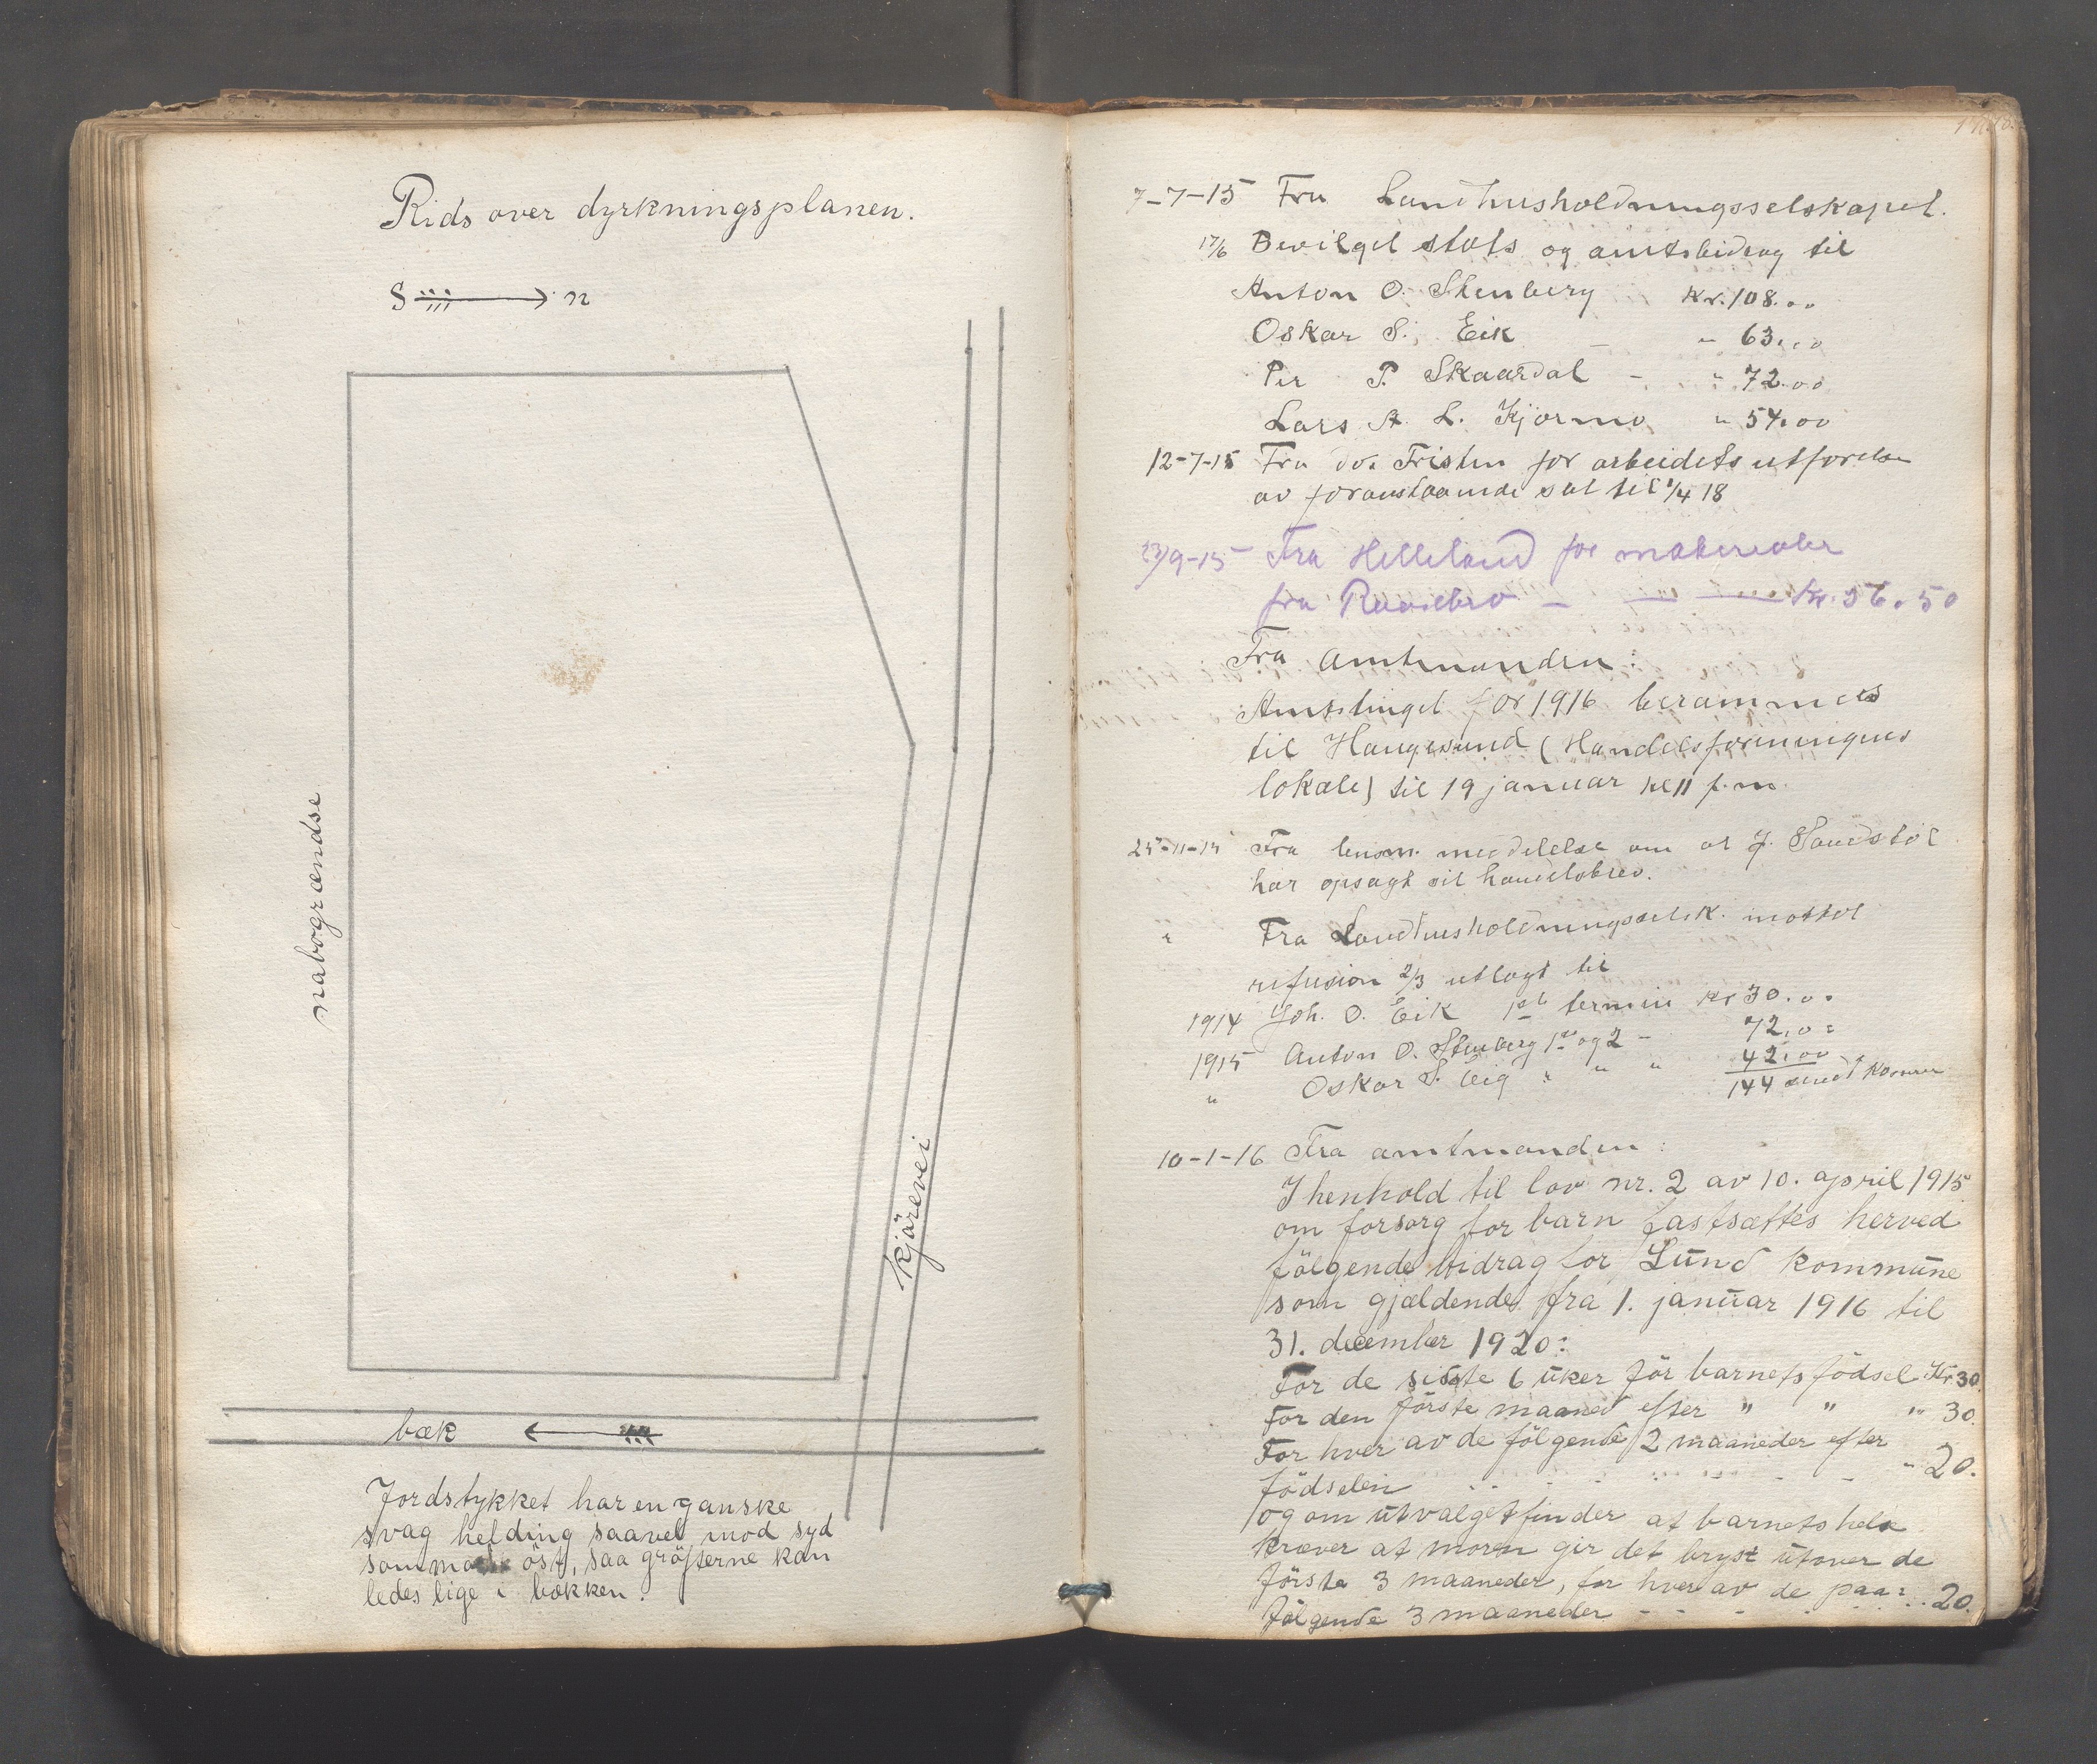 Rids over dyrkningsplanen.
S n
nabogrændse
kjärevei
bæk
Jordstykket har en ganske
svag helding saavel mod syd
som mot öst, saa gröfterne kan
ledes lige i bækken.
7-7-15 Fra Landhusholdningsselskapet.
17/6 Bevilget stats og amtsbidrag til
Anton O. Stenberg Kr. 108.00
Oskar S. Eik - " 63.00
Per P. Skaardal - " 72.00
Lars A. L. Kjørmo " 54.00
12-7-15 Fra do. Fristen for arbeidets utførelse
av foranstaaende sat til 1/4 18
23/9-15 Fra Helleland for materialer
fra - Kr. 56.50
Fra Amtmanden:
Amtstinget for 1916 berammes
til Haugesund (Handelsforeningens
lokale) til 19 januar kl 11 f.m.
25-11-15 Fra lensm. meddelelse om at J. Sandstøl
har opsagt sit handelsbrev.
" Fra Landhusholdningsselsk. mottat
refusion 2/3 utlagt til
1914 Joh. O. Eik 1ste termin Kr 30.00
1915 Anton O. Stenberg 1ste og 2 - 72.00
" Oskar S. Eig " " " 42.00
144 sendt kasserer
10-1-16 Fra amtmanden:
I henhold til lov nr. 2 av 10. april 1915
om forsorg for barn fastsættes herved
fölgende bidrag for Lund kommune
som gjældende fra 1. januar 1916 til
31. december 1920:
For de sidste 6 uker för barnets födsel Kr 30.
For den förste maaned efter " " " 30.
For hver av de fölgende 2 maaneder efter
födselen - - - " 20.
og om utvalget finder at barnets helse
kræver at moren gir det bryst utover de
förste 3 maaneder, for hver av de paa:
fölgende 3 maaneder - - - 20.